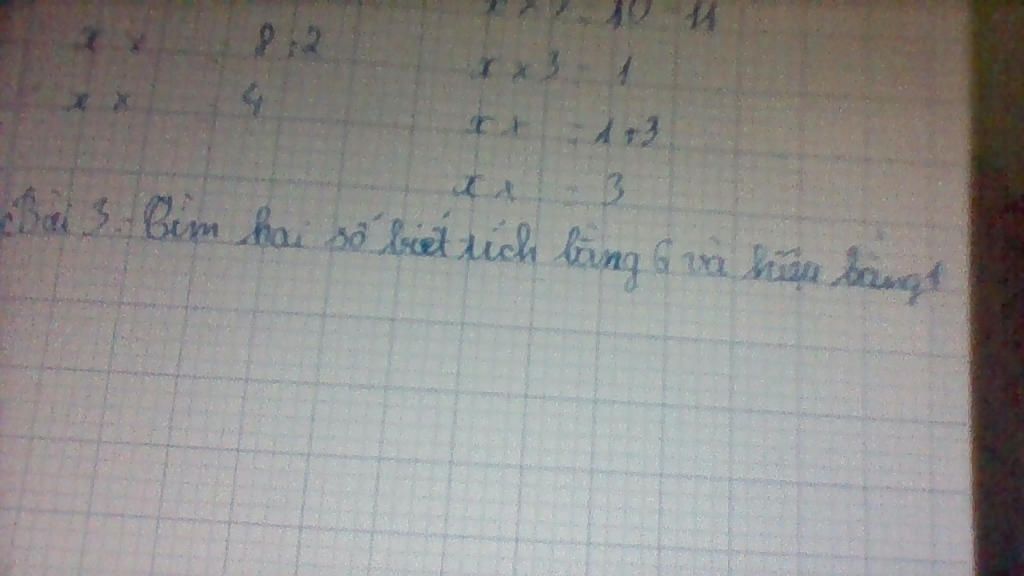 x x 8 : 2
x x 3 = 1
x x 4
x x = 1 + 3
x x = 3
Bài 3: Tìm hai số biết tích bằng 6 và hiệu bằng 1